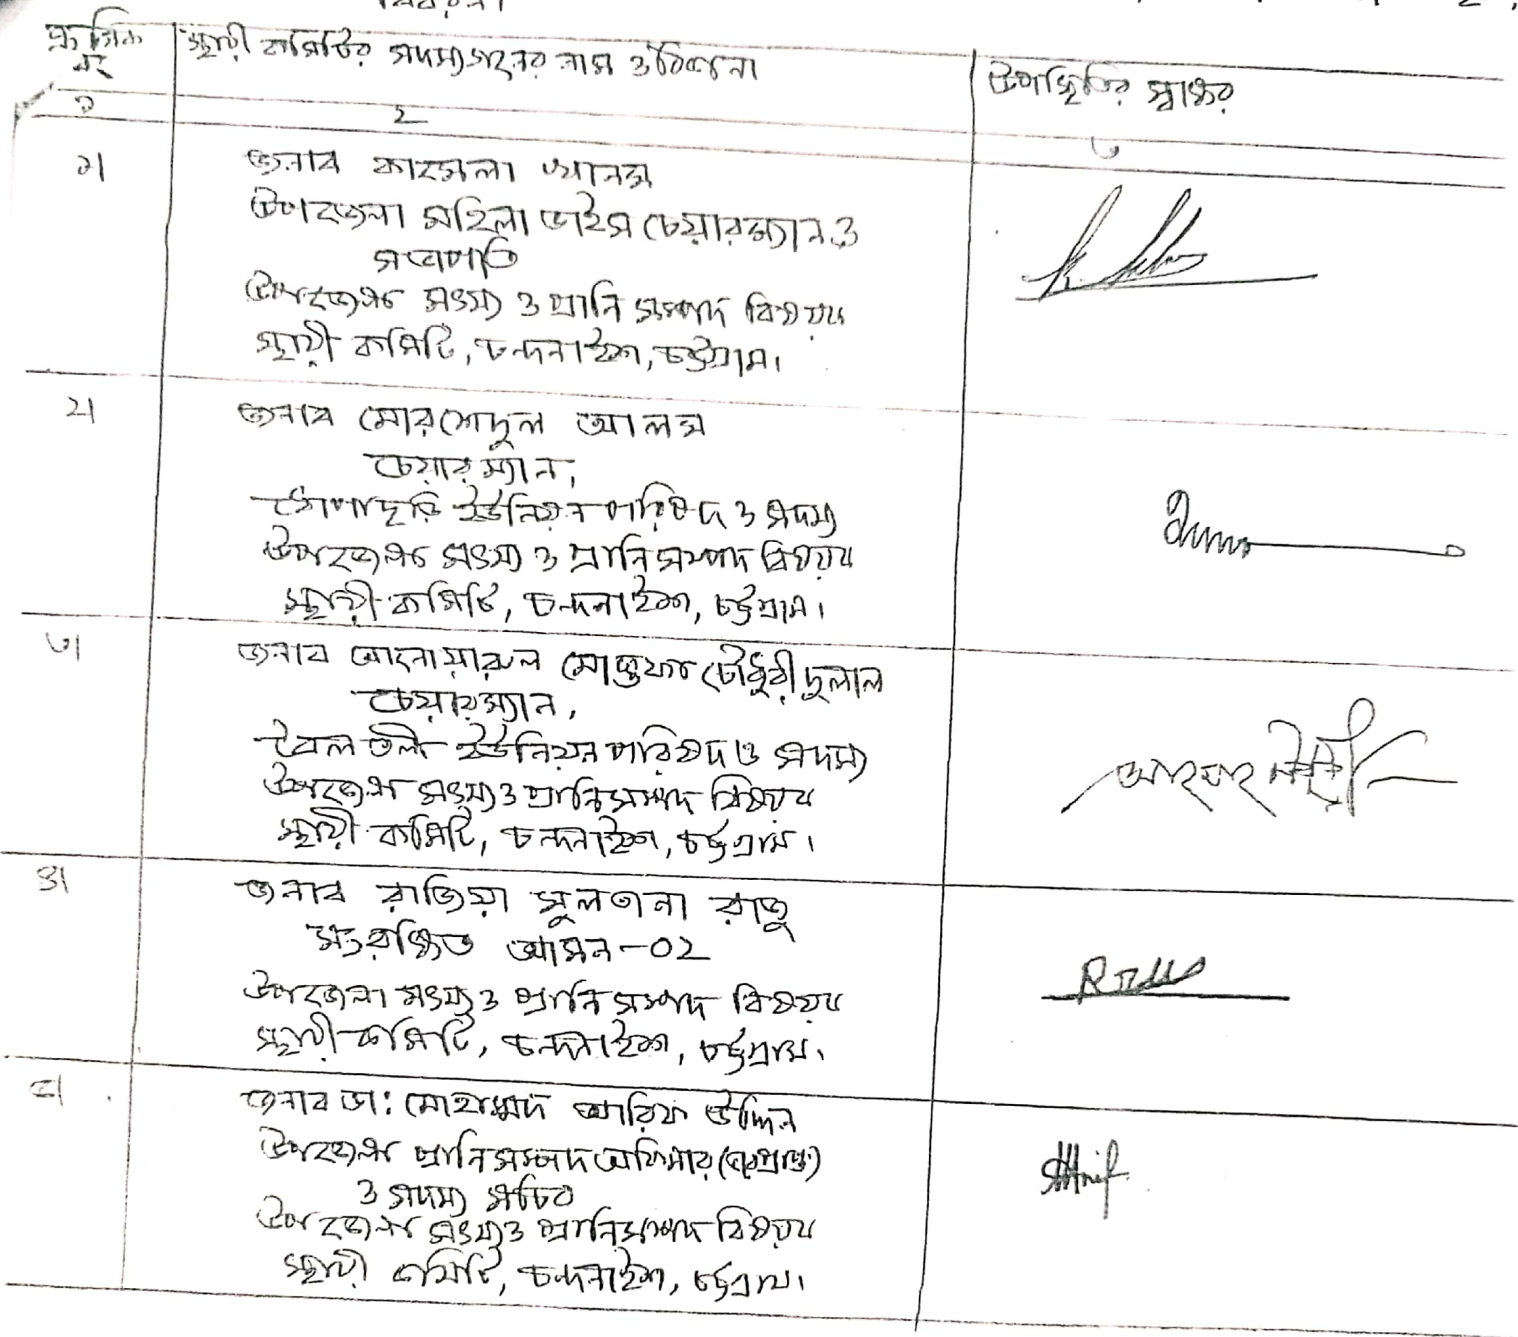 বিবরণী
ক্রমিক স্থায়ী কমিটির সদস্যগণের নাম ও ঠিকানা উপস্থিতির স্বাক্ষর
নং
১ ২ ৩
১। জনাব কামেলা খানম
উপজেলা মহিলা ভাইস চেয়ারম্যান ও
সভাপতি
উপজেলা মৎস্য ও প্রানি সম্পদ বিষয়ক
স্থায়ী কমিটি, চন্দনাইশ, চট্টগ্রাম।
২। জনাব মোরশেদুল আলম
চেয়ারম্যান,
ধোপাছড়ি ইউনিয়ন পরিষদ ও সদস্য
উপজেলা মৎস্য ও প্রানি সম্পদ বিষয়ক
স্থায়ী কমিটি, চন্দনাইশ, চট্টগ্রাম।
৩। জনাব আনোয়ারুল মোস্তফা চৌধুরী দুলাল
চেয়ারম্যান,
বৈলতলী ইউনিয়ন পরিষদ ও সদস্য
উপজেলা মৎস্য ও প্রানি সম্পদ বিষয়ক
স্থায়ী কমিটি, চন্দনাইশ, চট্টগ্রাম।
৪। জনাব রাজিয়া সুলতানা রাজু
সংরক্ষিত আসন-০২
উপজেলা মৎস্য ও প্রানি সম্পদ বিষয়ক
স্থায়ী কমিটি, চন্দনাইশ, চট্টগ্রাম।
৫। জনাব ডা: মোহাম্মদ আরিফ উদ্দিন
উপজেলা প্রানি সম্পদ অফিসার (ভারপ্রাপ্ত)
ও সদস্য সচিব
উপজেলা মৎস্য ও প্রানি সম্পদ বিষয়ক
স্থায়ী কমিটি, চন্দনাইশ, চট্টগ্রাম।